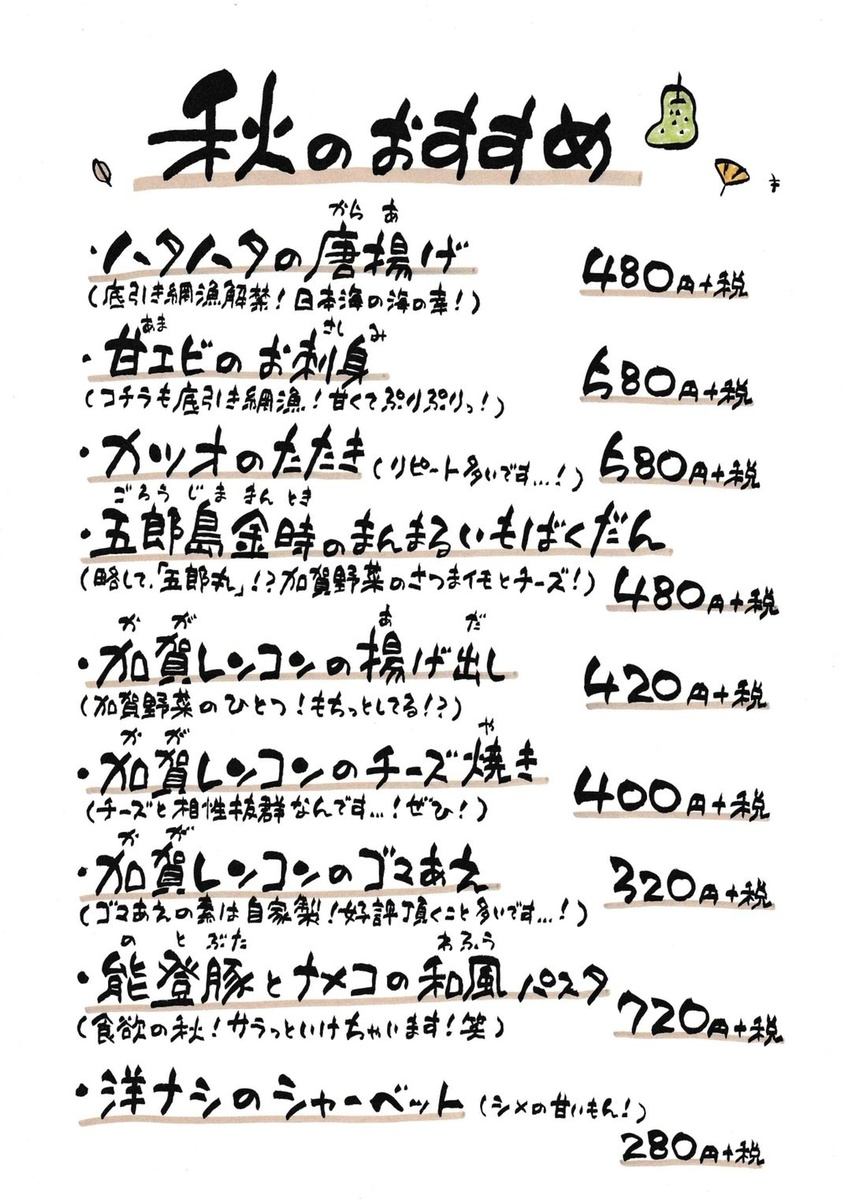 秋のおすすめ
から あ
・ハタハタの唐揚げ 480円+税
(底引き網漁解禁!日本海の海の幸!)
あま さし み
・甘エビのお刺身 680円+税
(コチラも底引き網漁!甘くてぷりぷりっ!)
・カツオのたたき (リピート多いです...!) 680円+税
ごろう じま きん とき
・五郎島金時のまんまるいもばくだん
(略して、「五郎丸」!?加賀野菜のさつまイモとチーズ!) 480円+税
か が あ だ
・加賀レンコンの揚げ出し 420円+税
(加賀野菜のひとつ!もちっとしてる!?)
か が や
・加賀レンコンのチーズ焼き 400円+税
(チーズと相性抜群なんです...!ぜひ!)
か が
・加賀レンコンのゴマあえ 320円+税
(ゴマあえの素は自家製!好評頂くこと多いです...!)
の と ぶた わふう
・能登豚とナメコの和風パスタ 720円+税
(食欲の秋!サラっといけちゃいます!笑)
・洋ナシのシャーベット (シメの甘いもん!)
280円+税